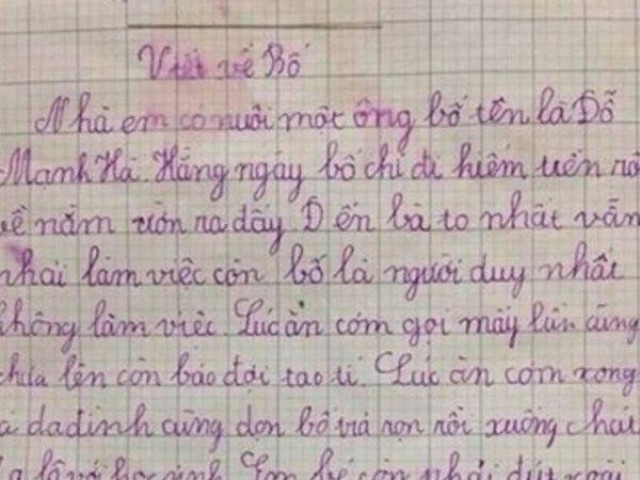 Viết về Bố
Nhà em có nuôi một ông bố tên là Đỗ
Mạnh Hà. Hằng ngày bố chỉ đi kiếm tiền rồ
về nằm ườn ra đấy Đến bà to nhất vẫn
phải làm việc còn bố là người duy nhất
không làm việc Lúc ăn cơm gọi mấy lần cũng
chưa lên còn bảo đợi tao tí. Lúc ăn cơm xong
cả da đình cùng dọn bố trả nọn rồi xuống